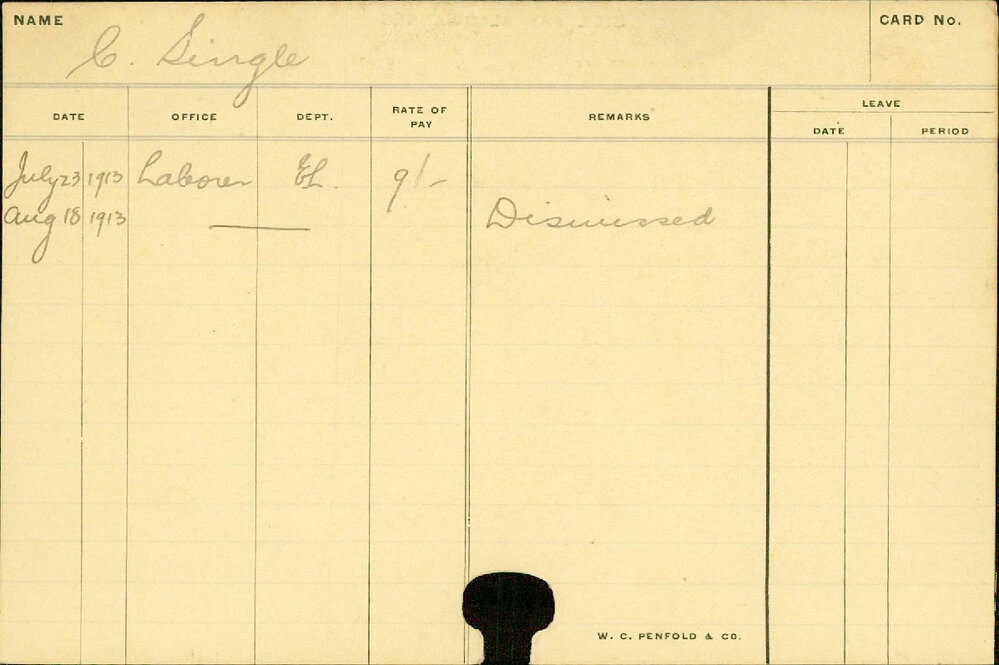 NAME C. Single CARD No.
DATE OFFICE DEPT. RATE OF PAY REMARKS LEAVE
DATE PERIOD
July 23 1913 Laborer EL. 9/-
Aug 18 1913 Dismissed
W. C. PENFOLD & CO.